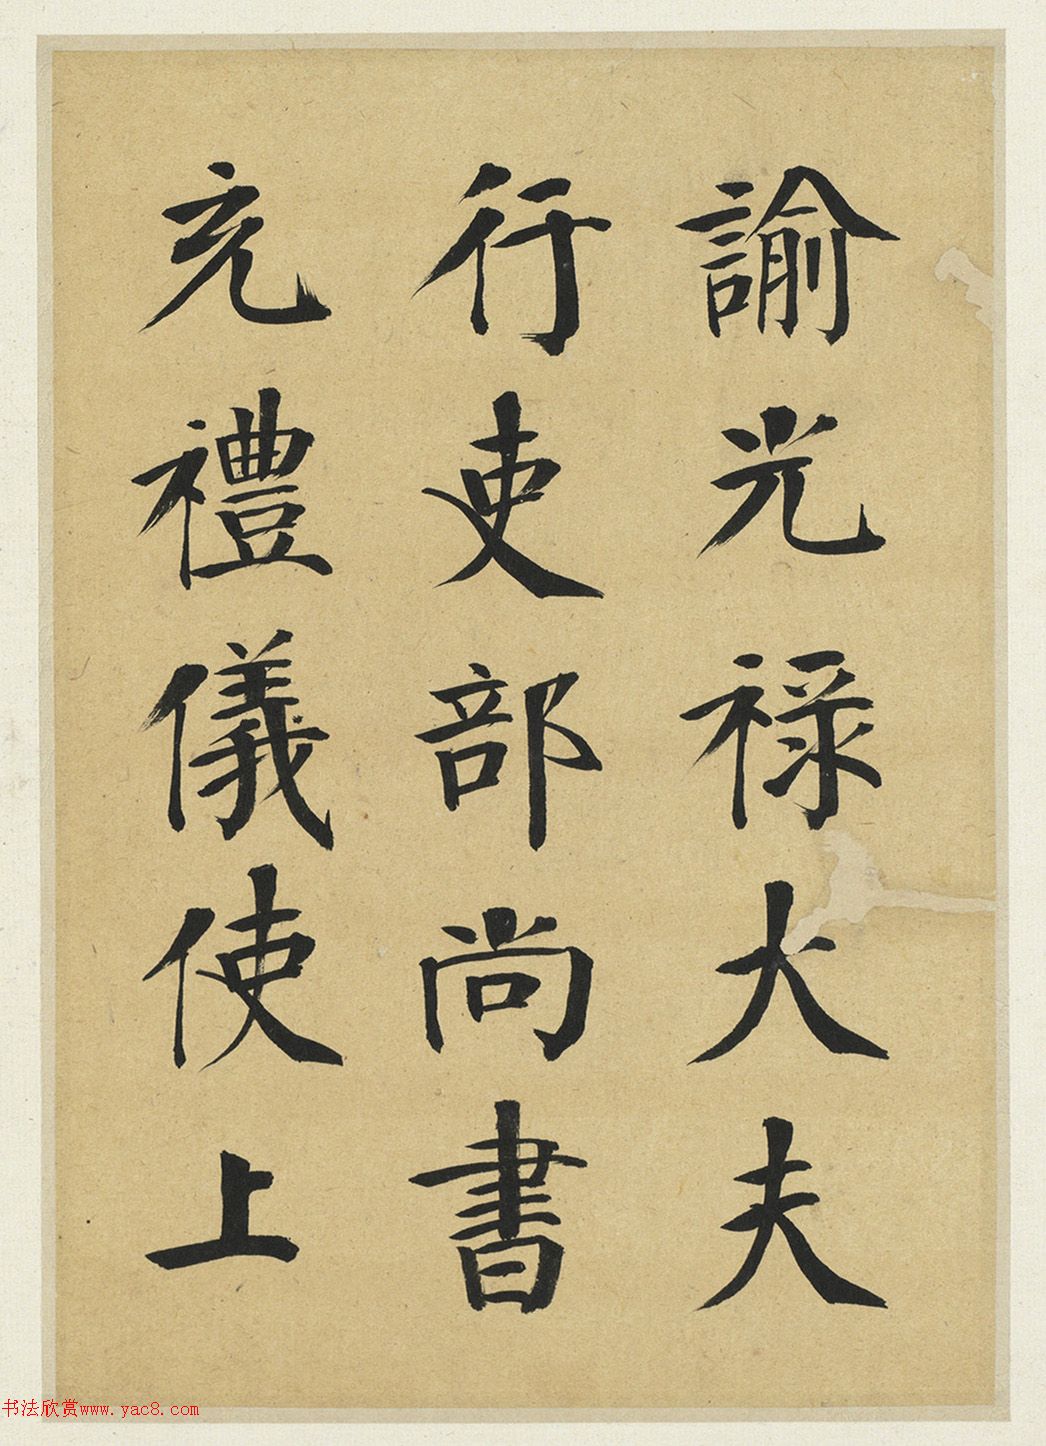 諭光禄大夫
行吏部尚書
充禮儀使上
书法欣赏www.yac8.com